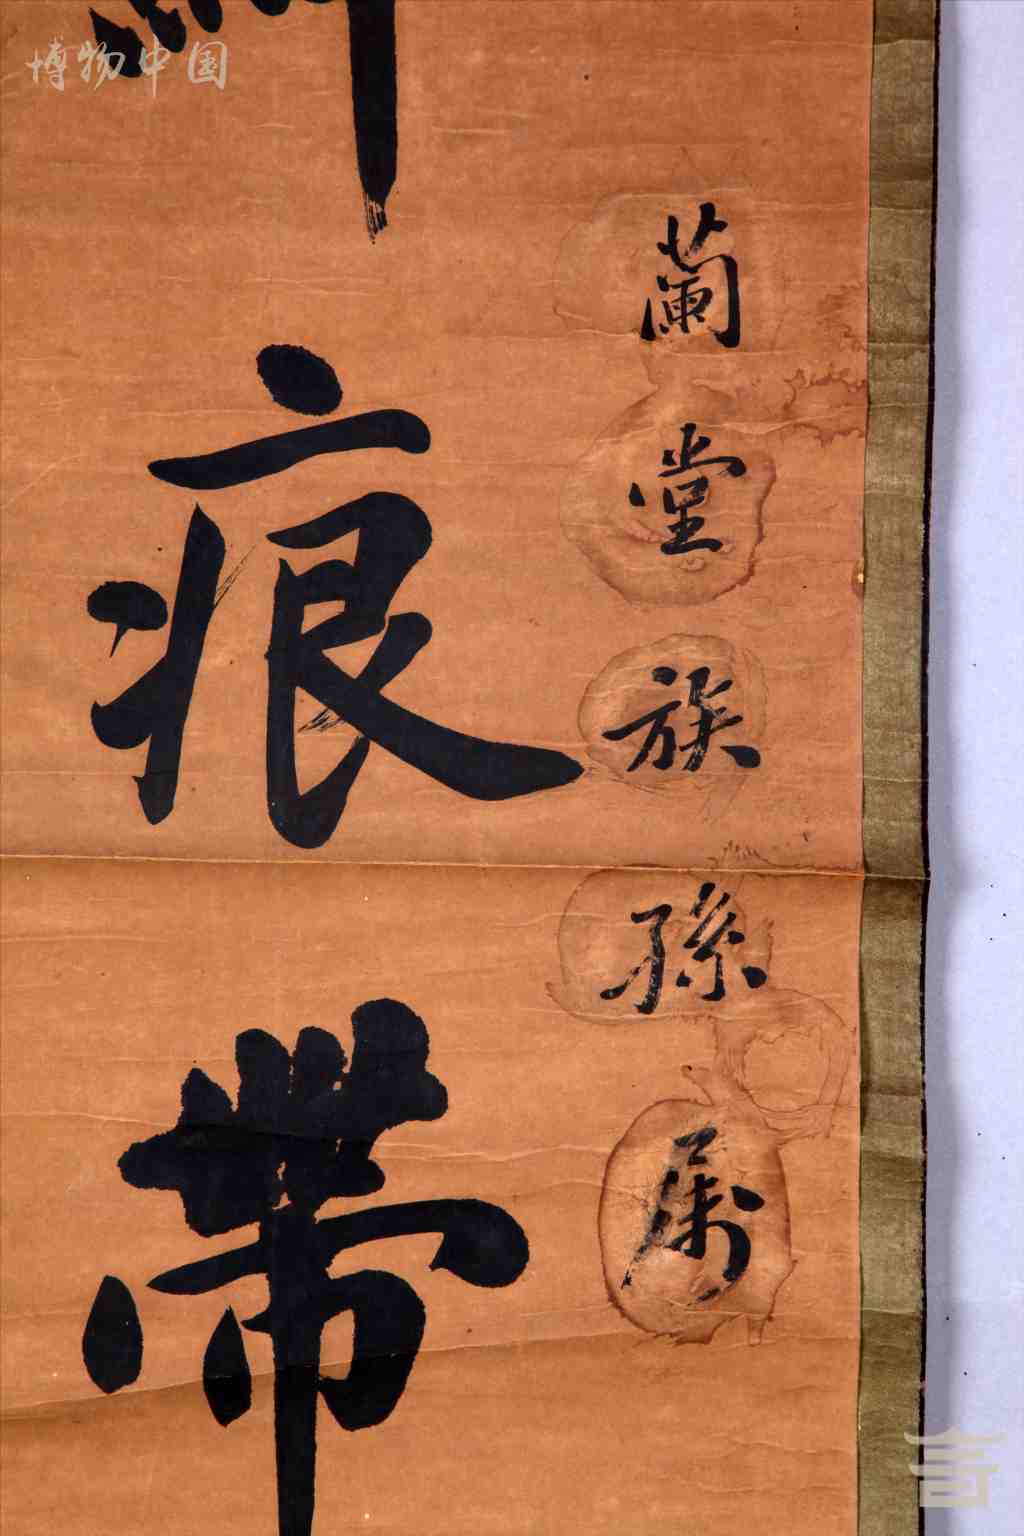 博物中国
蘭堂族孫属
痕帶